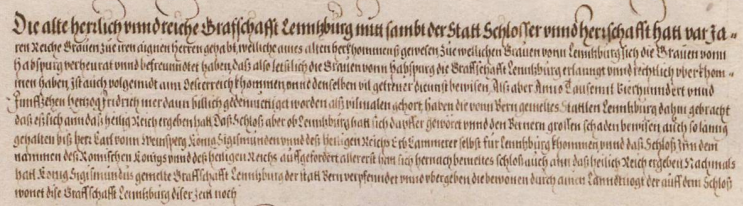 Die alte herrlich vnnd reiche Graffschafft Lenntzburg mitt sambt der Statt Schlosser vnnd herrschafft hatt vor Ja-
ren Reiche Grauen zue iren aignen Herren gehabt, welliche aines alten herkhommens gewesen Zue wellichen Grauen vonn Lenntzburg sich die Grauen vonn
Habspurg verheurat vnnd befreunndet haben, das also letstlich die Grauen vonn Habspurg die Graffschafft Lenntzburg erlanngt vnnd rechtlich vberkhom-
men haben, Ist auch volgenndt ann Oesterreich khommen vnnd denselben vil getreuer diennst bewisen. Als aber Anno Tausennt Vierhundert vnnd
Funffzehen hertzog Fridrich wer dann billich gedemuetiget worden als vilmalen gehort haben die vonn Bern gemeltes Stattlen Lenntzburg dahin gebracht
das es sich ann das heilig Reich ergeben hatt Das Schlos aber ob Lenntzburg hatt sich dapffer gewört vnnd den Bernern grossen schaden bewisen auch so lanng
gehalten bis herr Carl vonn Weinsperg König Sigismunden vnnd des heiligen Reichs Erb Cammerer selbst für Lenntzburg khommen vnnd das Schlos Inn dem
nammen des Römischen Königs vnnd des heiligen Reichs auffgefordert allererst hatt sich hernach bemeltes schlos auch ann das heilich Reich ergeben Nachmals
hatt König Sigismundus gemelte Graffschafft Lenntzburg der statt Bern verpfenndet vnnd vbergeben die bewonen durch ainen Lanndtuogt der auff dem Schlos
wonet dise Graffschafft Lenntzburg diser zeit noch